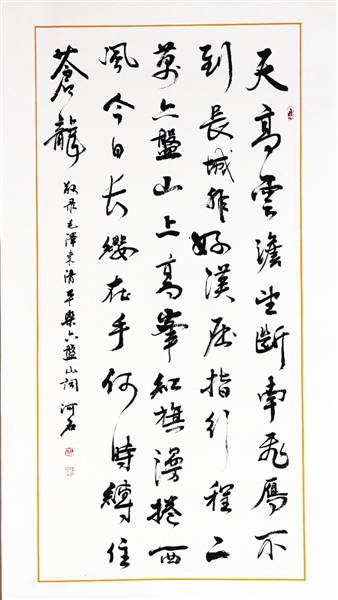 天高雲澹望斷南飛鴈不
到長城非好漢屈指行程二
萬六盤山上高峯紅旗漫捲西
風今日长纓在手何時縛住
蒼龍
敬录毛澤東清平樂六盤山詞 河石